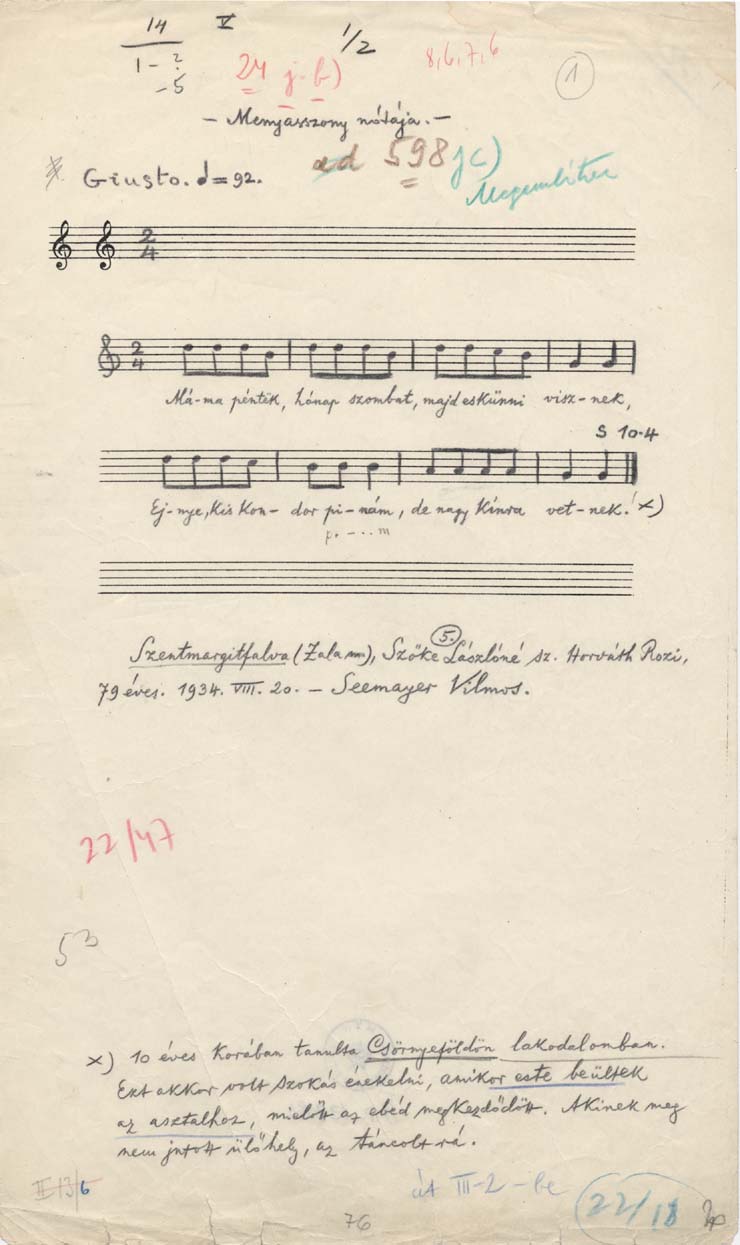 14 V 1/2 8,6,7,6
1 - ? 24 j. b) 1
- 5
- Menyasszony nótája. -
ad 598 jc)
Giusto. = 92.
2
4
2
4
Má-ma péntëk, hónap szombat, majd eskünni visz-nek,
S 10-4
Ej-nye, kis kon- dor pi-nám, de nagy kínra vet-nek! x)
p. - .. m
5.
Szentmargitfalva (Zala m), Szőke Lászlóné sz. Horváth Rozi,
79 éves. 1934. VIII. 20. - Seemayer Vilmos.
22/47
53
x) 10 éves korában tanulta Csörnyeföldön lakodalomban.
Ezt akkor volt szokás énekelni, amikor este beültek
az asztalhoz, mielőtt az ebéd megkezdődött. Akinek meg
nem jutott ülőhely, az táncolt rá.
II 13/6 át III-2-be 22/18
76